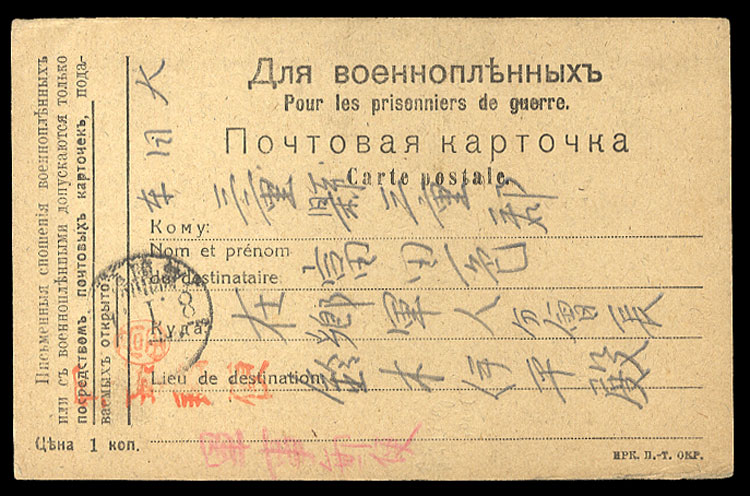 Письменныя сношенія военноплѣнныхъ
или съ военноплѣнными допускаются только
посредствомъ почтовыхъ карточекъ, пода-
ваемыхъ открыто.
Для военноплѣнныхъ
Pour les prisonniers de guerre.
Почтовая карточка
Carte postale.
Кому:
Nom et prénom
de destinataire:
Куда:
Lieu de destination:
Цѣна 1 коп.
ИРК. П.-Т. ОКР.
大日本
三重縣三重郡
富田一色
在郷軍人分會長
鈴木 平殿
軍事郵便